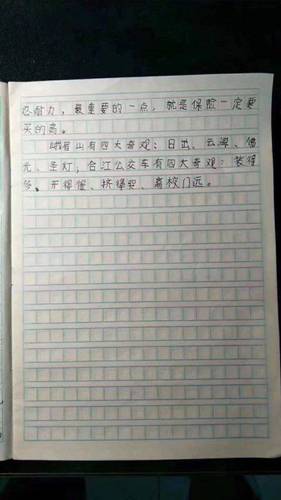 忍耐力，最重要的一点，就是保险一定要
买的高。
峨眉山有四大奇观：日出、云海、佛
光、圣灯，合江公交车有四大奇观：装得
多、开得慢、挤爆、离校门远。